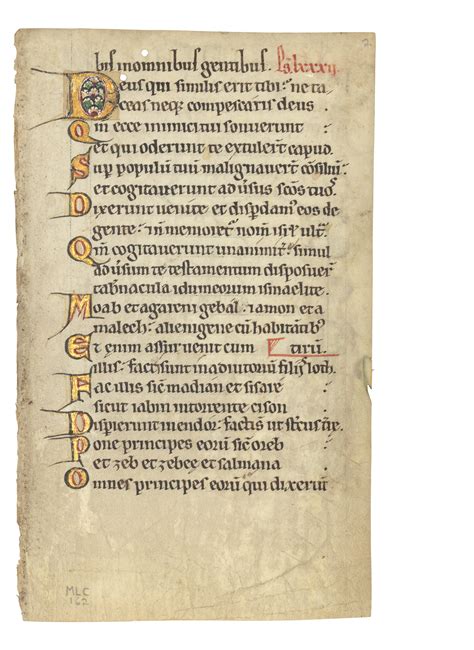 bis in omnibus gentibus. ps̄ lxxxij 2
Deus qui similis erit tibi: ne ta
ceas neq; compescaris deus
Qm̄ ecce inimici tui sonuerunt
et qui oderunt te extulerт capud.
Sup populū tuū malignauerт consiliū
et cogitauerunt aduersus sc̄os tuos
Dixerunt uenite et disperdam̄ eos de
gente: & n̄ memoret̄ nom̄ isrl̄ ult̄.
Qm̄ cogitauerunt unanimit̄: simul
aduersum te testamentum disposuer̄
tab̄nacula idumeorum ismaelite.
Moab et agareni gebal: & amon et a
malech: alienigene cū habitātib;
Et enim assur uenit cum tirū.
illis: facti sunt in adiutoriū filijs loth.
Fac illis sic̄ madian et sisare
sicut iabin in torrente cison
Disperierunt in endor: facti s̄ ut stercus
Pone principes eorū sic̄ oreb
et zeb et zebee et salmana
Omnes principes eorū qui dixerunt
MLC
162